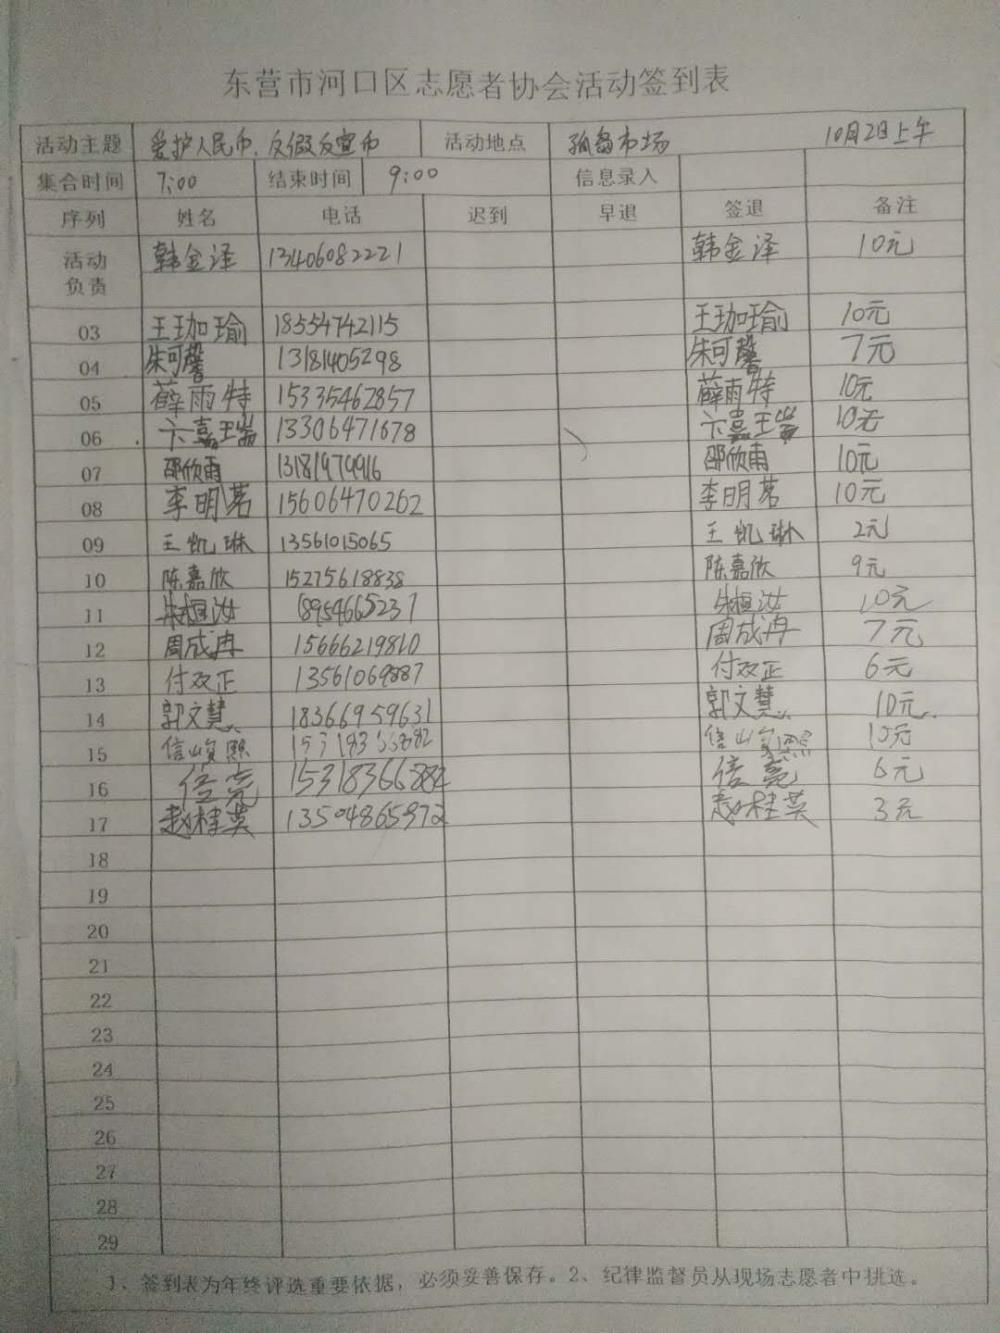 东营市河口区志愿者协会活动签到表
活动主题 爱护人民币、反假反宣币 活动地点 孤岛市场 10月2日上午
集合时间 7:00 结束时间 9:00 信息录入
序列 姓名 电话 迟到 早退 签退 备注
活动负责 韩金泽 13406082221 韩金泽 10元
03 王珈瑜 18554742115 王珈瑜 10元
04 朱可馨 13181405298 朱可馨 7元
05 薛雨特 15335462857 薛雨特 10元
06 卞嘉瑞 13306471678 卞嘉瑞 10元
07 邵欣雨 13181979916 邵欣雨 10元
08 李明茗 15606470262 李明茗 10元
09 王凯琳 13561015065 王凯琳 2元
10 陈嘉欣 15275618838 陈嘉欣 9元
11 朱桓汝 18954665237 朱桓汝 10元
12 周成冉 15666219810 周成冉 7元
13 付双正 13561069887 付双正 6元
14 郭文慧 18366959631 郭文慧 10元
15 10元
16 信亮 15318366884 信亮 6元
17 赵桂英 13504865972 赵桂英 3元
18
19
20
21
22
23
24
25
26
27
28
29
1、签到表为年终评选重要依据，必须妥善保存。2、纪律监督员从现场志愿者中挑选。